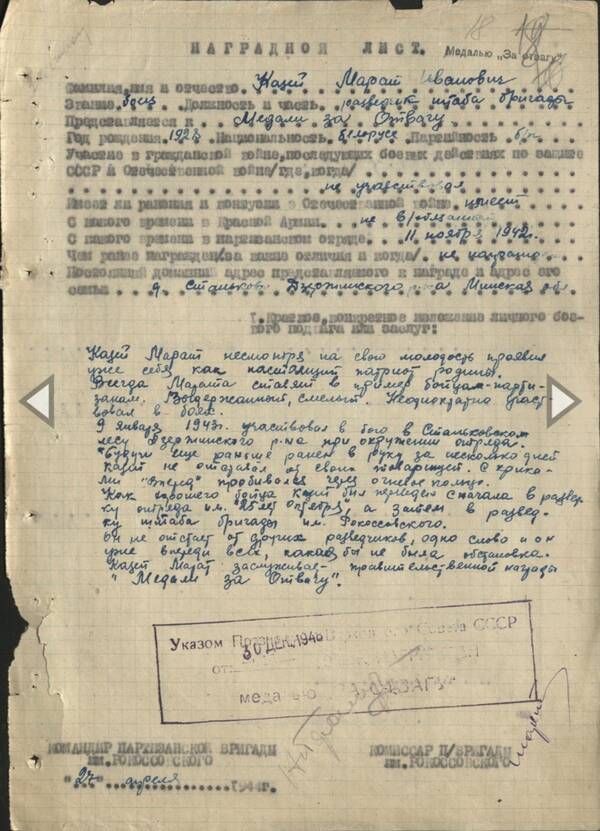 НАГРАДНОЙ ЛИСТ. Медалью „За отвагу"
Фамилия, имя и отчество Казей Марат Иванович
Звание боец Должность и часть разведчик штаба бригады
Представляется к Медали за Отвагу
Год рождения 192 Национальность белорус Партийность б/п
Участие в гражданской войне, последующих боевых действиях по защите
СССР и Отечественной войне/где, когда/
не участвовал
Имеет ли ранения и контузии в Отечественной войне имеет
С какого времени в Красной Армии не в/обязанный
С какого времени в партизанском отряде 11 ноября 1942г.
Чем ранее награжден/за какие отличия и когда/ не награжден
Постоянный домашний адрес представляемого к награде и адрес его
семьи д. Станьково Дзержинского р-на Минская обл.
I. Краткое, конкретное изложение личного бое-
вого подвига или заслуг:
Казей Марат несмотря на свою молодость проявил
уже себя как настоящий патриот родины.
Всегда Марата ставят в пример бойцам-парти-
занам. Выдержанный, смелый. Неоднократно участ-
вовал в боях.
9 января 1943г. участвовал в бою в Станьковском
лесу Дзержинского р-на при окружении отряда.
Будучи еще раньше ранен в руку за несколько дней
Казей не отставал от своих товарищей. С крика-
ми "вперед" пробивался через огневое кольцо.
Как хорошего бойца Казей был переведен сначала в развед-
ку отряда им. "25 лет Октября", а затем в развед-
ку штаба бригады им. Рокоссовского.
Он не отстает от других разведчиков, одно слово и он
уже впереди всех, какая бы не была обстановка.
Казей Марат заслуживает правительственной награды
"Медали за Отвагу".
Указом Верховного Совета СССР
30 ДЕК. 1946
медалью
КОМАНДИР ПАРТИЗАНСКОЙ БРИГАДЫ КОМИССАР П/БРИГАДЫ
ИМ. РОКОССОВСКОГО ИМ. РОКОССОВСКОГО
"27" апреля 1944г.